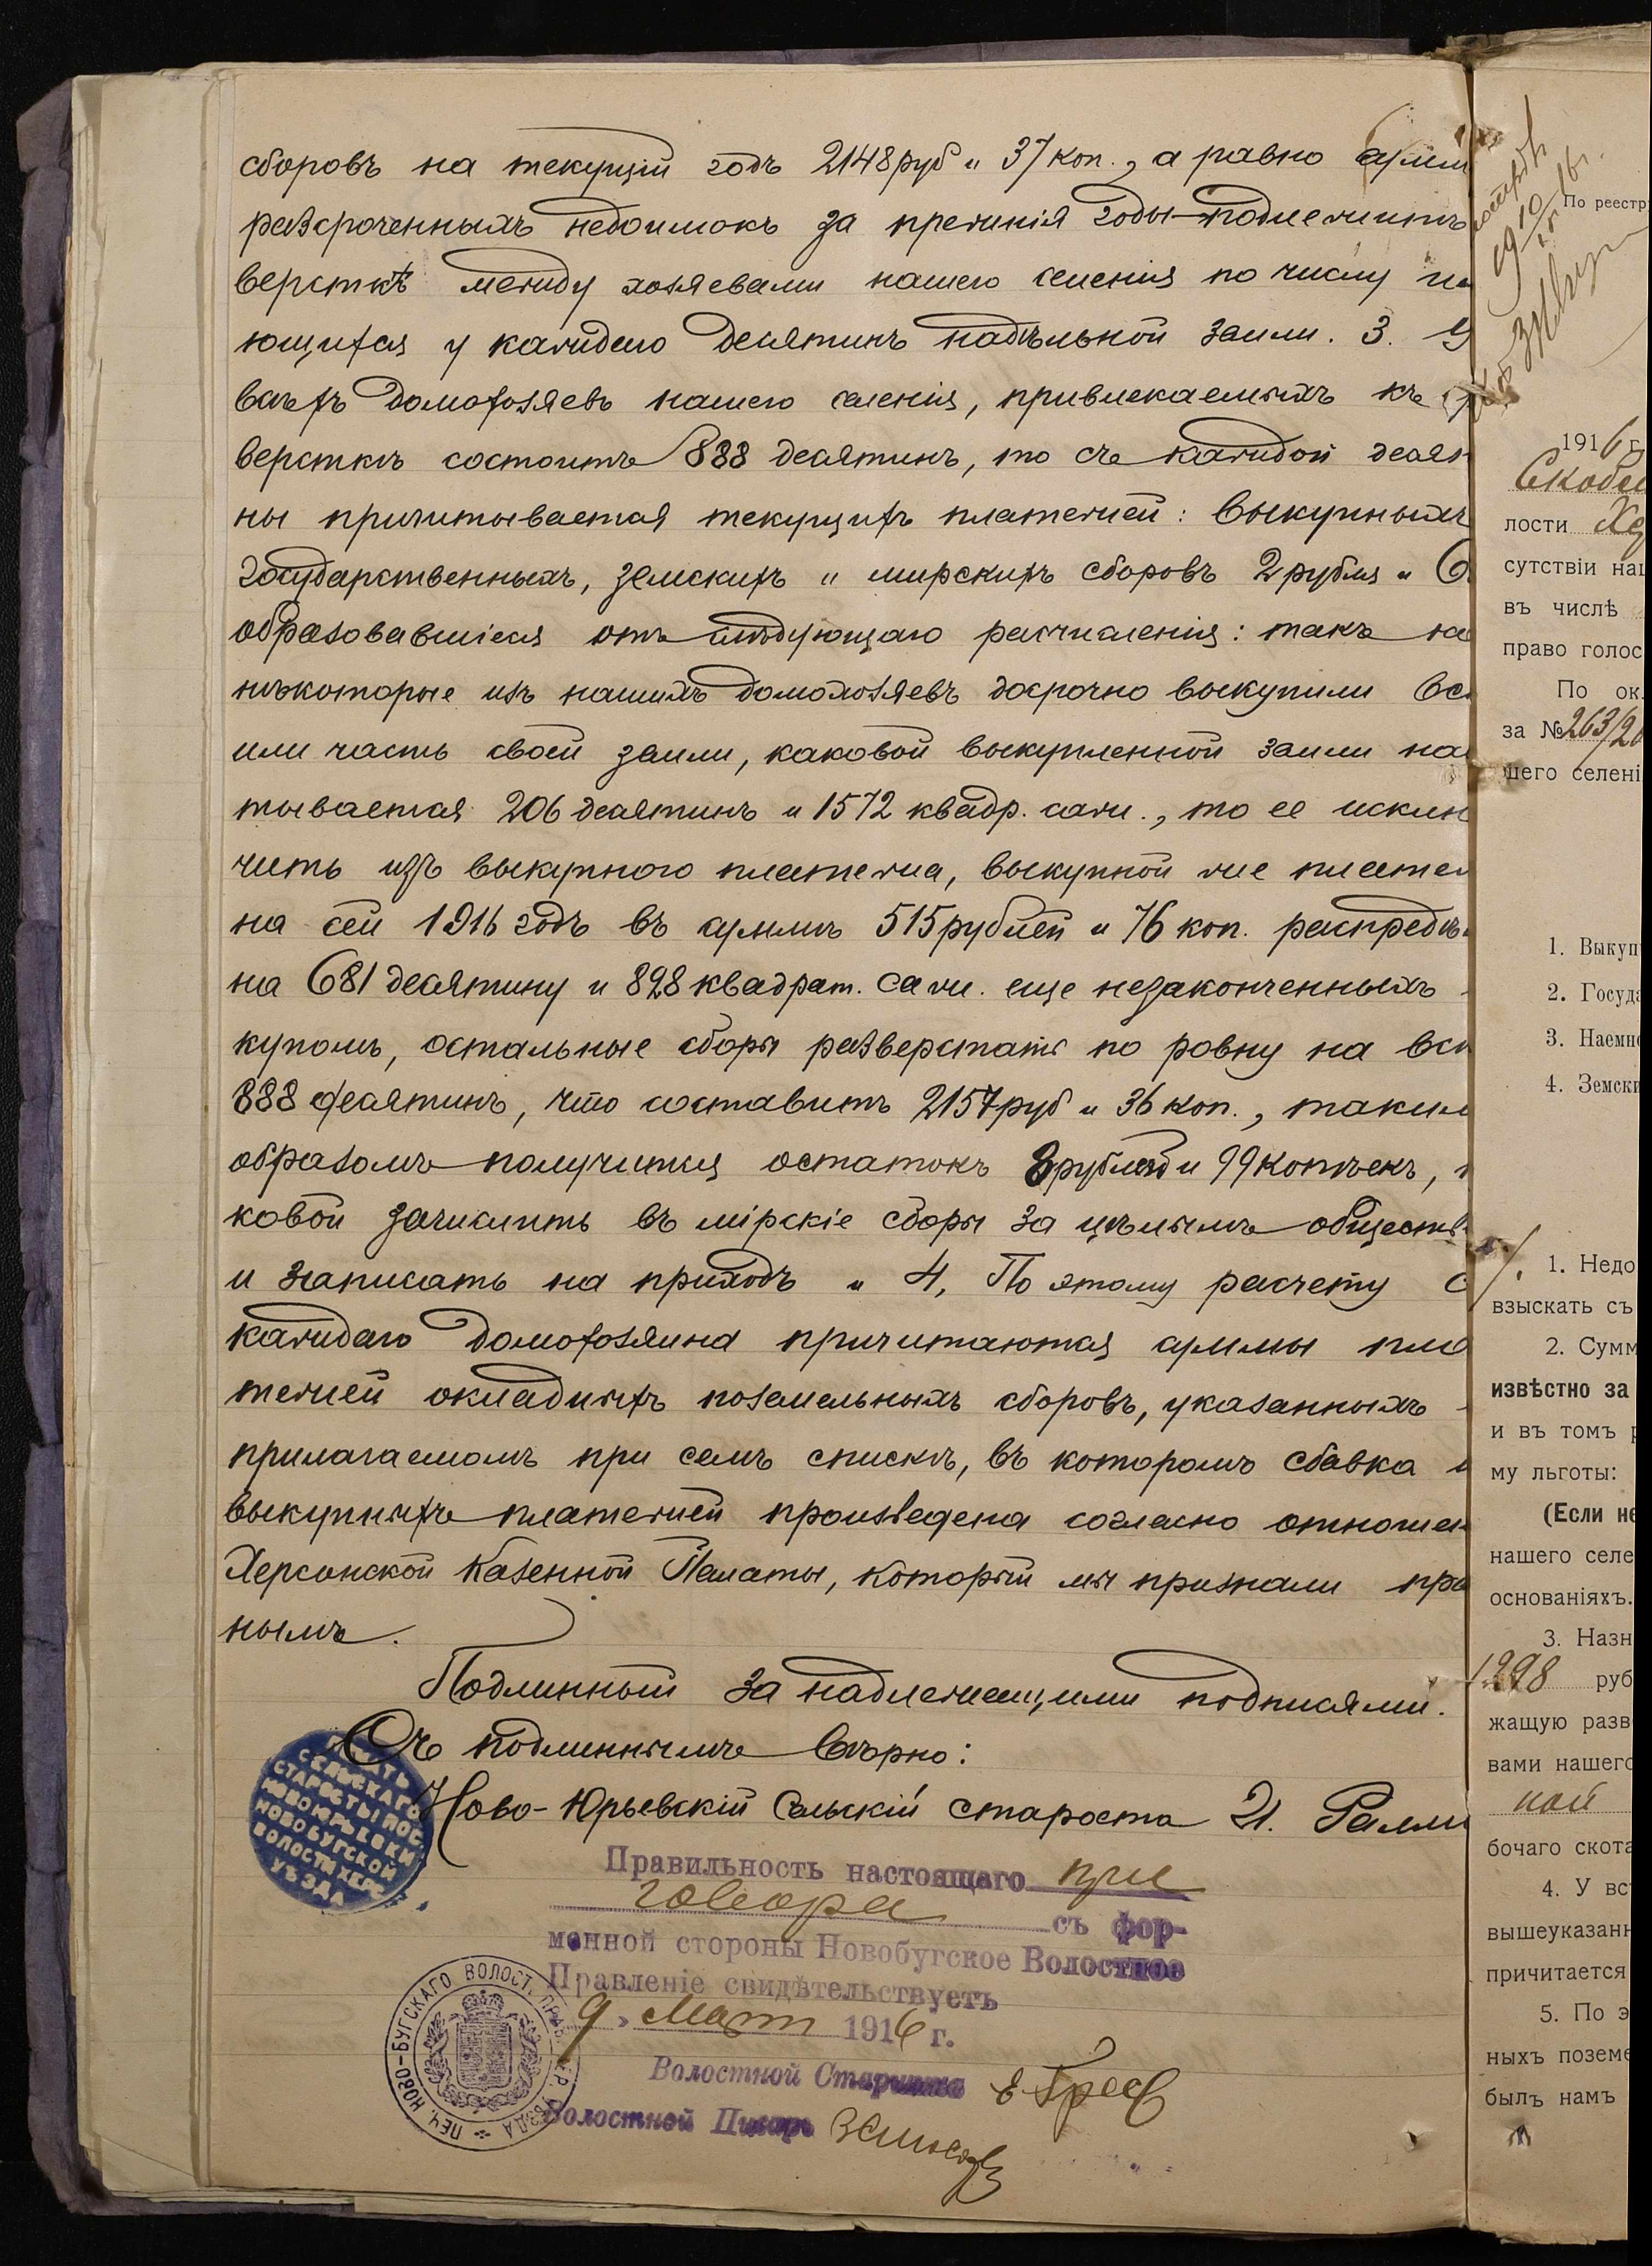 сборовъ на текущій годъ 2148 руб и 37 коп., а равно сумм
разсроченныхъ недоимокъ за прежнія годы подлежитъ
верстке между хозяевами нашего селенія по числу
ющихся у каждаго десятинъ надѣльной земли. 3. У
всѣхъ домохозяевъ нашего селенія, привлекаемыхъ къ
верстке состоитъ 888 десятинъ, то съ каждой десят
ны причитывается текущихъ платежей: выкупныхъ
государственныхъ, земскихъ и мирскихъ сборовъ 2 рубля и
образовавшіеся отъ слѣдующаго расчисленія: такъ ка
нѣкоторые изъ нашихъ домохозяевъ досрочно выкупили вс
или часть своей земли, каковой выкупленной земли на
тывается 206 десятинъ и 1572 квадр. саж., то ее исклю
чить изъ выкупного платежа, выкупной же платеж
на сей 1916 годъ въ суммѣ 515 рублей и 76 коп. распредѣ
на 681 десятину и 828 квадрат. саж. еще незаконченныхъ
купомъ, остальные сборы разверстать по ровну на вс
888 десятинъ, что составитъ 2157 руб и 36 коп., таким
образомъ получится остатокъ 8 рублей и 99 копѣекъ,
ковой зачислить въ мірскіе сборы за цѣлымъ обществ
и записать на приходъ и 4, По этому расчету с
каждаго домохозяина причитаются суммы пла
тежей окладныхъ поземельныхъ сборовъ, указанныхъ
прилагаемомъ при семъ спискѣ, въ которомъ сбавка
выкупныхъ платежей произведена согласно отношен
Херсонской Казенной Палаты, который мы признали пра
нымъ.
Подлинный за надлежащими подписями.
Съ подлиннымъ вѣрно:
Ново-Юрьевскій Сельскій староста И.
СЕЛЬСКАГО
СТАРОСТЫ ПОС.
НОВОЮРЬЕВКИ
НОВОБУГСКОЙ
ВОЛОСТИ ХЕР.
УѢЗДА
Правильность настоящаго при
говора съ фор-
менной стороны Новобугское Волостное
Правленіе свидѣтельствуетъ
9 Март 1916 г.
Волостной Старшина
Волостной Писарь
ПЕЧ. НОВО-БУГСКАГО ВОЛОСТ. ПРАВ. ХЕР. УѢЗДА
По реестр
1916 г
Скобел
лости
сутствіи наш
въ числѣ
право голос
По ок
за № 263/20
шего селені
1. Выкуп
2. Госуда
3. Наемн
4. Земски
1. Недо
взыскать съ
2. Сумм
извѣстно за
и въ томъ р
му льготы:
(Если не
нашего селе
основаніяхъ.
3. Назн
1298 руб
жащую разв
вами нашего
ной
бочаго скота
4. У вс
вышеуказанн
причитается
5. По э
ныхъ поземе
былъ намъ